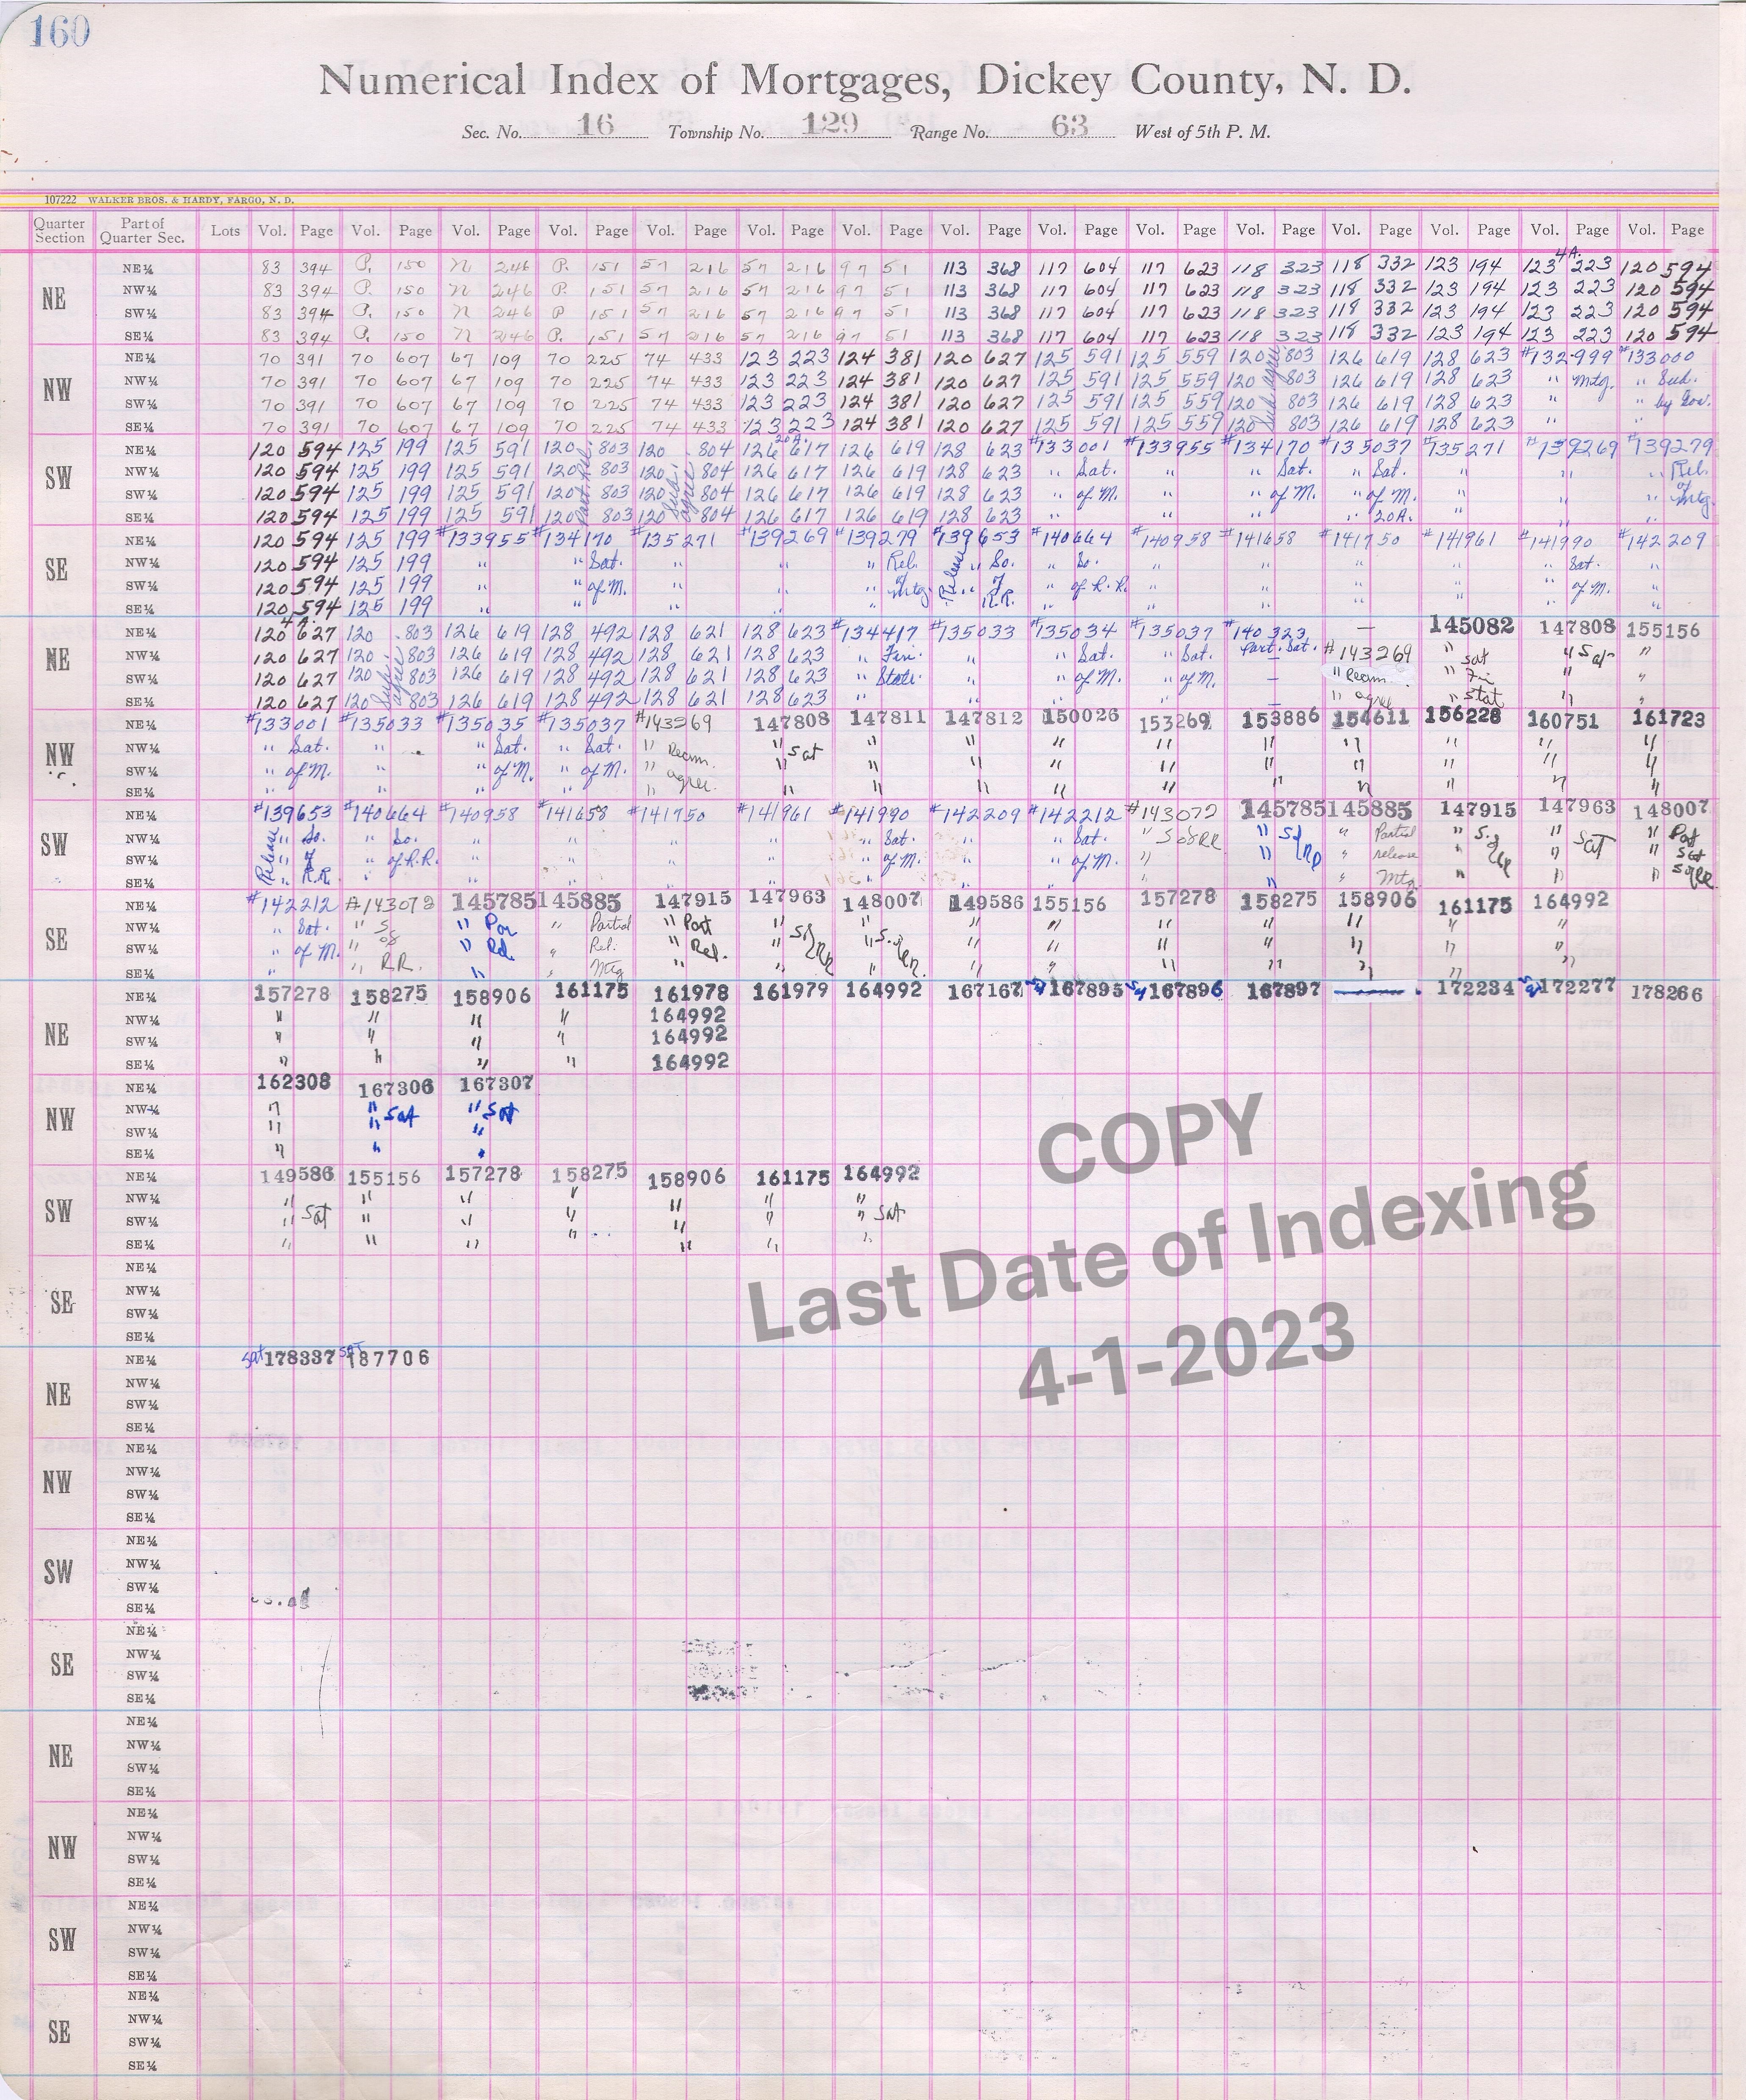 160
Numerical Index of Mortgages, Dickey County, N. D.
Sec. No. 16 Township No. 129 Range No. 63 West of 5th P. M.
107222 WALKER BROS. & HARDY, FARGO, N. D.
Quarter Section Part of Quarter Sec. Lots Vol. Page Vol. Page Vol. Page Vol. Page Vol. Page Vol. Page Vol. Page Vol. Page Vol. Page Vol. Page Vol. Page Vol. Page Vol. Page Vol. Page Vol. Page
4A.
NE¼ 83 394 P. 150 N 246 P. 151 57 216 57 216 97 51 113 368 117 604 117 623 118 323 118 332 123 194 123 223 120 594
NE NW¼ 83 394 P. 150 N 246 P. 151 57 216 57 216 97 51 113 368 117 604 117 623 118 323 118 332 123 194 123 223 120 594
SW¼ 83 394 P. 150 N 246 P 151 57 216 57 216 97 51 113 368 117 604 117 623 118 323 118 332 123 194 123 223 120 594
SE¼ 83 394 P. 150 N 246 P. 151 57 216 57 216 97 51 113 368 117 604 117 623 118 323 118 332 123 194 123 223 120 594
NE¼ 70 391 70 607 67 109 70 225 74 433 123 223 124 381 120 627 125 591 125 559 120 803 126 619 128 623 #132999 #133000
NW NW¼ 70 391 70 607 67 109 70 225 74 433 123 223 124 381 120 627 125 591 125 559 120 803 126 619 128 623 " Mtg. "
SW¼ 70 391 70 607 67 109 70 225 74 433 123 223 124 381 120 627 125 591 125 559 120 803 126 619 128 623 " " by Gov.
SE¼ 70 391 70 607 67 109 70 225 74 433 123 223 124 381 120 627 125 591 125 559 120 803 126 619 128 623 " "
20A.
NE¼ 120 594 125 199 125 591 120 803 120 804 126 617 126 619 128 623 #133001 #133955 #134170 #135037 #135271 #139269 #139279
SW NW¼ 120 594 125 199 125 591 120 803 120 804 126 617 126 619 128 623 " Sat. " " Sat. " Sat. " " " Rel.
SW¼ 120 594 125 199 125 591 120 803 120 804 126 617 126 619 128 623 " of M. " " of M. " of M. " " " of Mtg.
SE¼ 120 594 125 199 125 591 120 803 120 804 126 617 126 619 128 623 " " " " 20A. " " "
NE¼ 120 594 125 199 #133955 #134170 #135271 #139269 #139279 #139653 #140664 #140958 #141658 #141750 #141961 #141990 #142209
SE NW¼ 120 594 125 199 " " Sat. " " " Rel. " So. " So. " " " " " Sat. "
SW¼ 120 594 125 199 " " of M. " " " of Mtg. Release " of " of R.R. " " " " " of M. "
SE¼ 120 594 125 199 " " " " " " R.R. " " " " " " "
4A.
NE¼ 120 627 120 803 126 619 128 492 128 621 128 623 #134417 #135033 #135034 #135037 #140323 — 145082 147808 155156
NE NW¼ 120 627 120 803 126 619 128 492 128 621 128 623 " Fin. " " Sat. " Sat. Part. Sat. #143269 " Sat " Sat "
SW¼ 120 627 120 803 126 619 128 492 128 621 128 623 " State. " " of M. " of M. — " Ream. " Fin " "
SE¼ 120 627 120 803 126 619 128 492 128 621 128 623 " " " " — " agree " Stat " "
NE¼ #133001 #135033 #135035 #135037 #143269 147808 147811 147812 150026 153269 153886 154611 156228 160751 161723
NW NW¼ " Sat. " " Sat. " Sat. " Ream. " Sat " " " " " " " " "
SW¼ " of M. " " of M. " of M. " agree. " " " " " " " " " "
SE¼ " " " " " " " " " " " " " " "
NE¼ #139653 #140664 #140958 #141658 #141750 #141961 #141990 #142209 #142212 #143072 145785 145885 147915 147963 148007
SW NW¼ Release " So. " So. " " " " " Sat. " " Sat. " S of RR " " Partial " " " Part
SW¼ " of " of R.R. " " " " " of M. " " of M. " " " release " " Sat " Sat
SE¼ " R.R. " " " " " " " " " " Mtg " " "
NE¼ #142212 #143072 145785 145885 147915 147963 148007 149586 155156 157278 158275 158906 161175 164992
SE NW¼ " Sat. " S " Par " Partial " Part " " " " " " " " "
SW¼ " of M. " of " Rel. " Rel. " Rel. " " " " " " " " "
SE¼ " " RR. " " Mtg " " " " " " " " " "
NE¼ 157278 158275 158906 161175 161978 161979 164992 167167 167895 167896 167897 — 172234 172277 178266
NE NW¼ " " " " 164992
SW¼ " " " " 164992
SE¼ " " " " 164992
NE¼ 162308 167306 167307
NW NW¼ " " Sat " Sat
SW¼ " " "
SE¼ " " "
NE¼ 149586 155156 157278 158275 158906 161175 164992
SW NW¼ " " " " " " "
SW¼ " Sat " " " " " " Sat
SE¼ " " " " " " "
NE¼
SE NW¼
SW¼
SE¼
NE¼ Sat 178337 Sat 187706
NE NW¼
SW¼
SE¼
NE¼
NW NW¼
SW¼
SE¼
NE¼
SW NW¼
SW¼
SE¼
NE¼
SE NW¼
SW¼
SE¼
NE¼
NE NW¼
SW¼
SE¼
NE¼
NW NW¼
SW¼
SE¼
NE¼
SW NW¼
SW¼
SE¼
NE¼
SE NW¼
SW¼
SE¼
COPY
Last Date of Indexing
4-1-2023